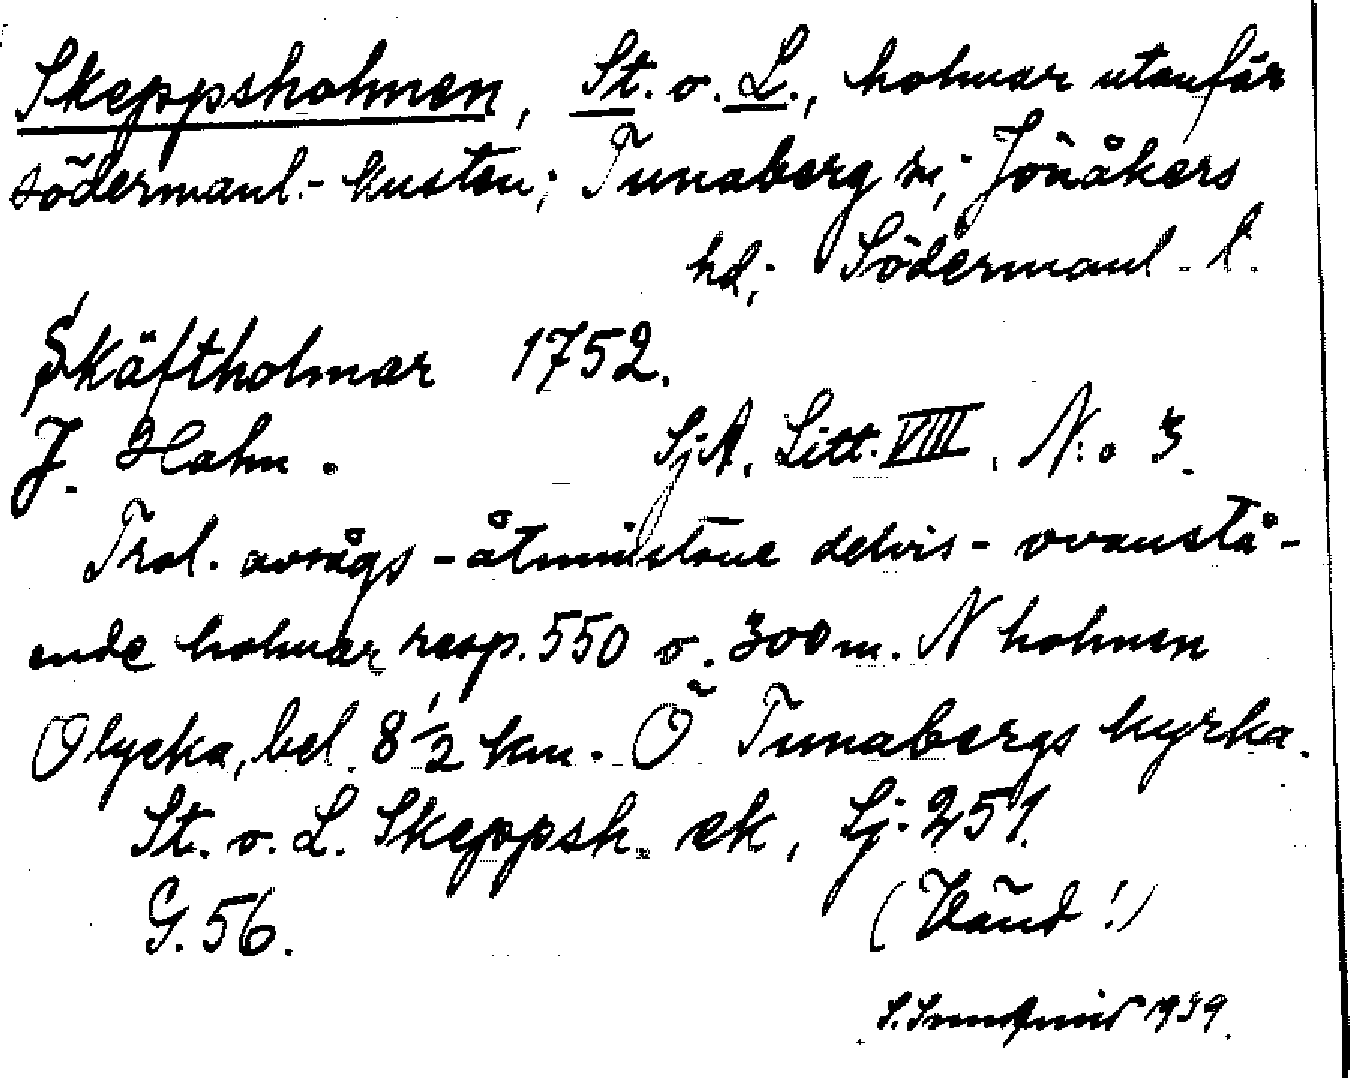 Skeppsholmen, St. o. L., holmar utanför
södermanl.- kusten; Tunaberg sn; Jönåkers
hd; Södermanl. l.
Skäftholmar 1752.
J. Hahn. SjA. Litt. VIII, N:o 3.
Trol. avsågs - åtminstone delvis - ovanstå-
ende holmar resp. 550 o. 300 m. N holmen
Olycka, bel. 8 1/2 km. Ö Tunabergs kyrka.
St. o. L. Skeppsh. ek, Sj. 251.
G. 56. (Vänd!)
1939.